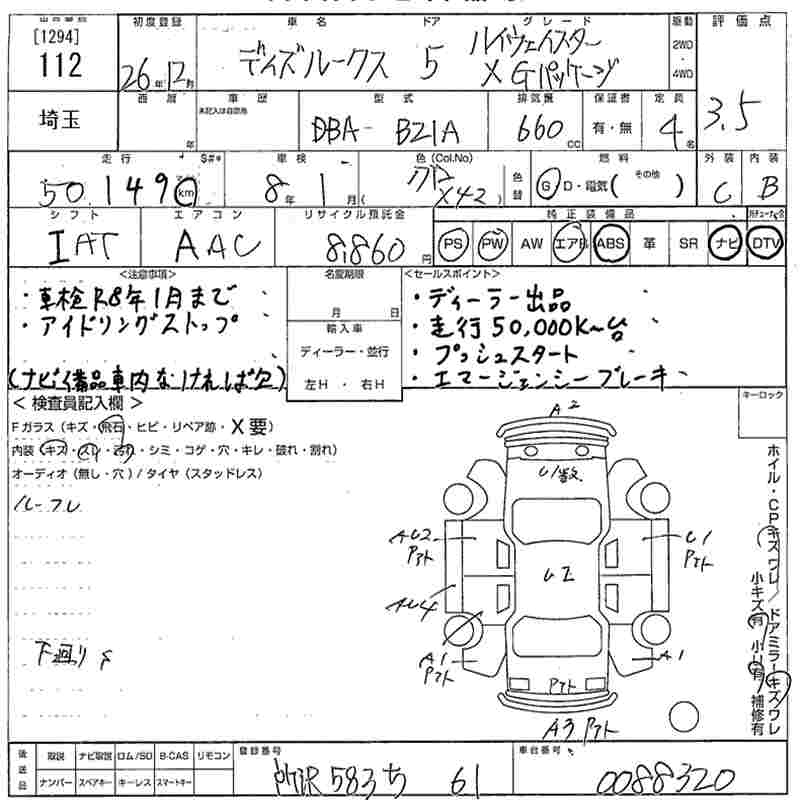 [1294]
112
埼玉
初度登録
26年12月
車名
デイズルークス
ドア
5
グレード
ハイウェイスター
X Gパッケージ
駆動
2WD
・
4WD
評価点
3.5
西暦
年
車歴
未記入は自家用
型式
DBA- BZ1A
排気量
660
CC
保証書
有・無
定員
4名
走行
50,149 km
S#*
車検
8年1月
色(Col.No)
X42
色替
燃料
G・D・電気( その他 )
外装
C
内装
B
シフト
IAT
エアコン
AAC
リサイクル預託金
8,860円
純正装備品
PS PW AW エアB ABS 革 SR ナビ DTV
<注意事項>
・車検R8年1月まで
・アイドリングストップ
(ナビ備品車内なければ欠)
名変期限
月 日
輸入車
ディーラー・並行
左H ・ 右H
<セールスポイント>
・ディーラー出品
・走行50,000K〜台
・プッシュスタート
・エマージェンシーブレーキ
<検査員記入欄>
Fガラス(キズ・飛石・ヒビ・リペア跡・X要)
内装(キズ・スレ・汚れ・シミ・コゲ・穴・キレ・破れ・割れ)
オーディオ(無し・穴)/タイヤ(スタッドレス)
ルーフU
下廻りS
キーロック
A2
U1数
AU2
アト
U1
アト
UI
AU4
A1
アト
A1
アト
A3アト
ホイル・CPキズワレ/ドアミラーキズワレ
小キズ有 小U有 補修有
後送品
取説 ナビ取説 ロム/SD B-CAS リモコン
ナンバー スペアキー キーレス スマートキー
登録番号
所沢 583 ち 61
車台番号
0088320